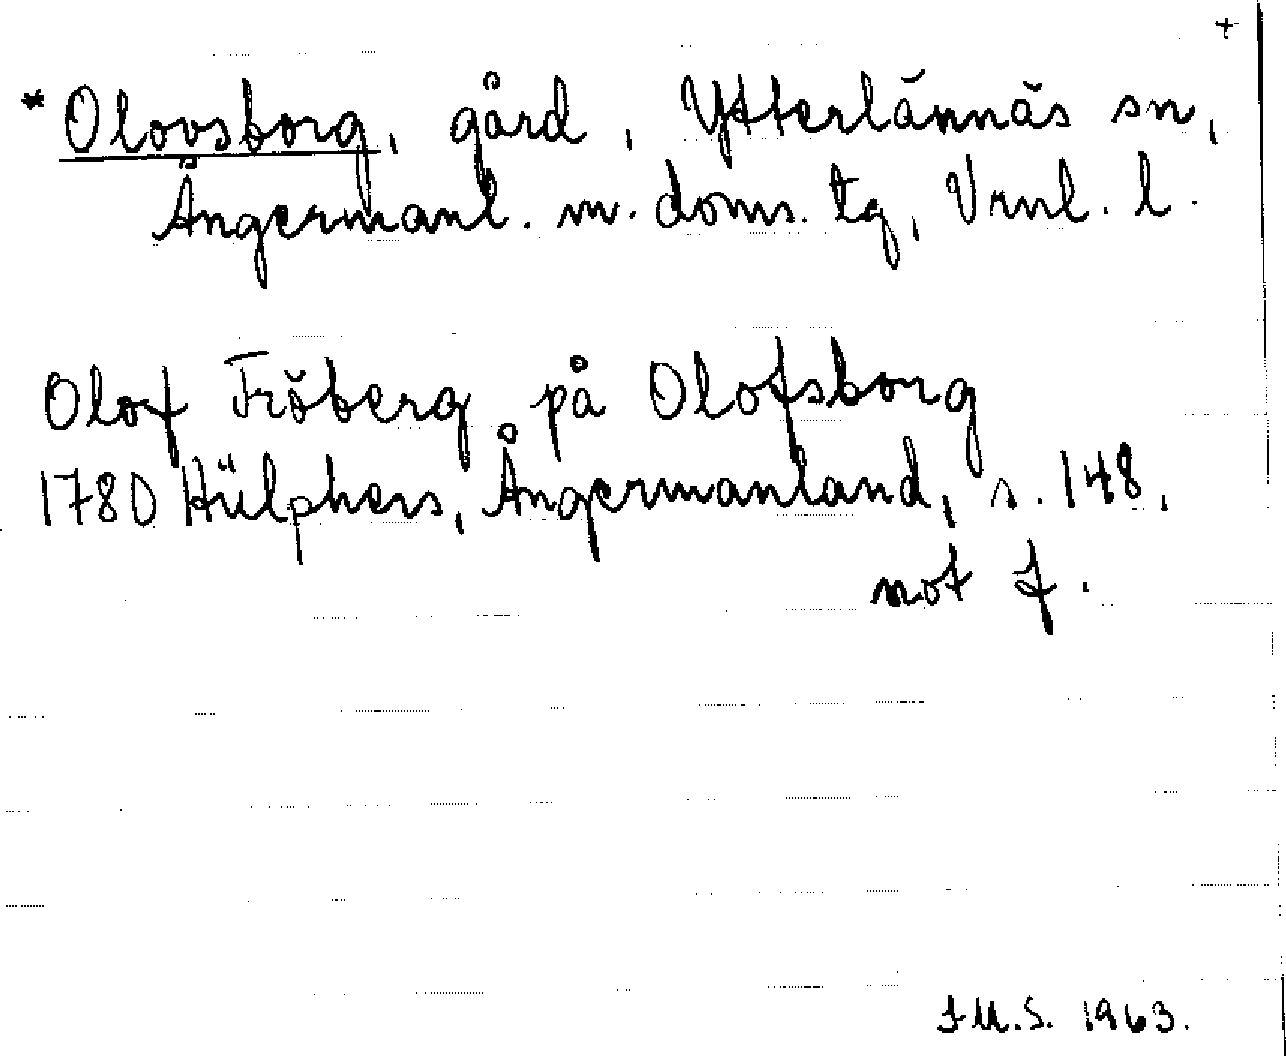 +
*Olovsborg, gård, Ytterlännäs sn,
Ångermanl. m. doms. tg, Vrnl. l.
Olof Fröberg på Olofsborg
1780 Hülphers, Ångermanland, s. 148,
not f.
J M.S. 1963.